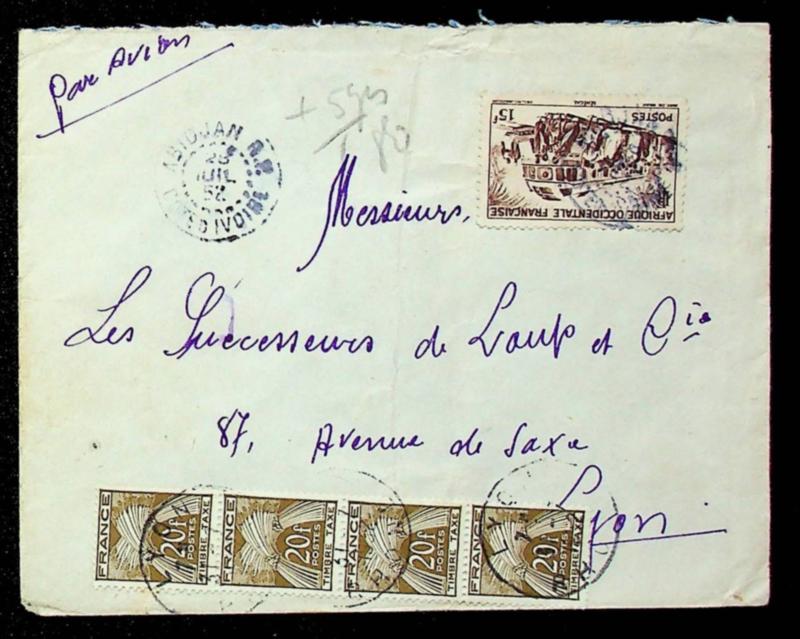 Par Avion
+ 5grs
80
ABIDJAN R.P.
JUIL
52
CÔTE D'IVOIRE
15f
POSTES
SÉNÉGAL
AFRIQUE OCCIDENTALE FRANÇAISE
Messieurs,
Les Successeurs de Loup et Cie
87, Avenue de Saxe
Lyon
FRANCE 20f POSTES TIMBRE TAXE
FRANCE 20f POSTES TIMBRE TAXE
FRANCE 20f POSTES TIMBRE TAXE
FRANCE 20f POSTES TIMBRE TAXE